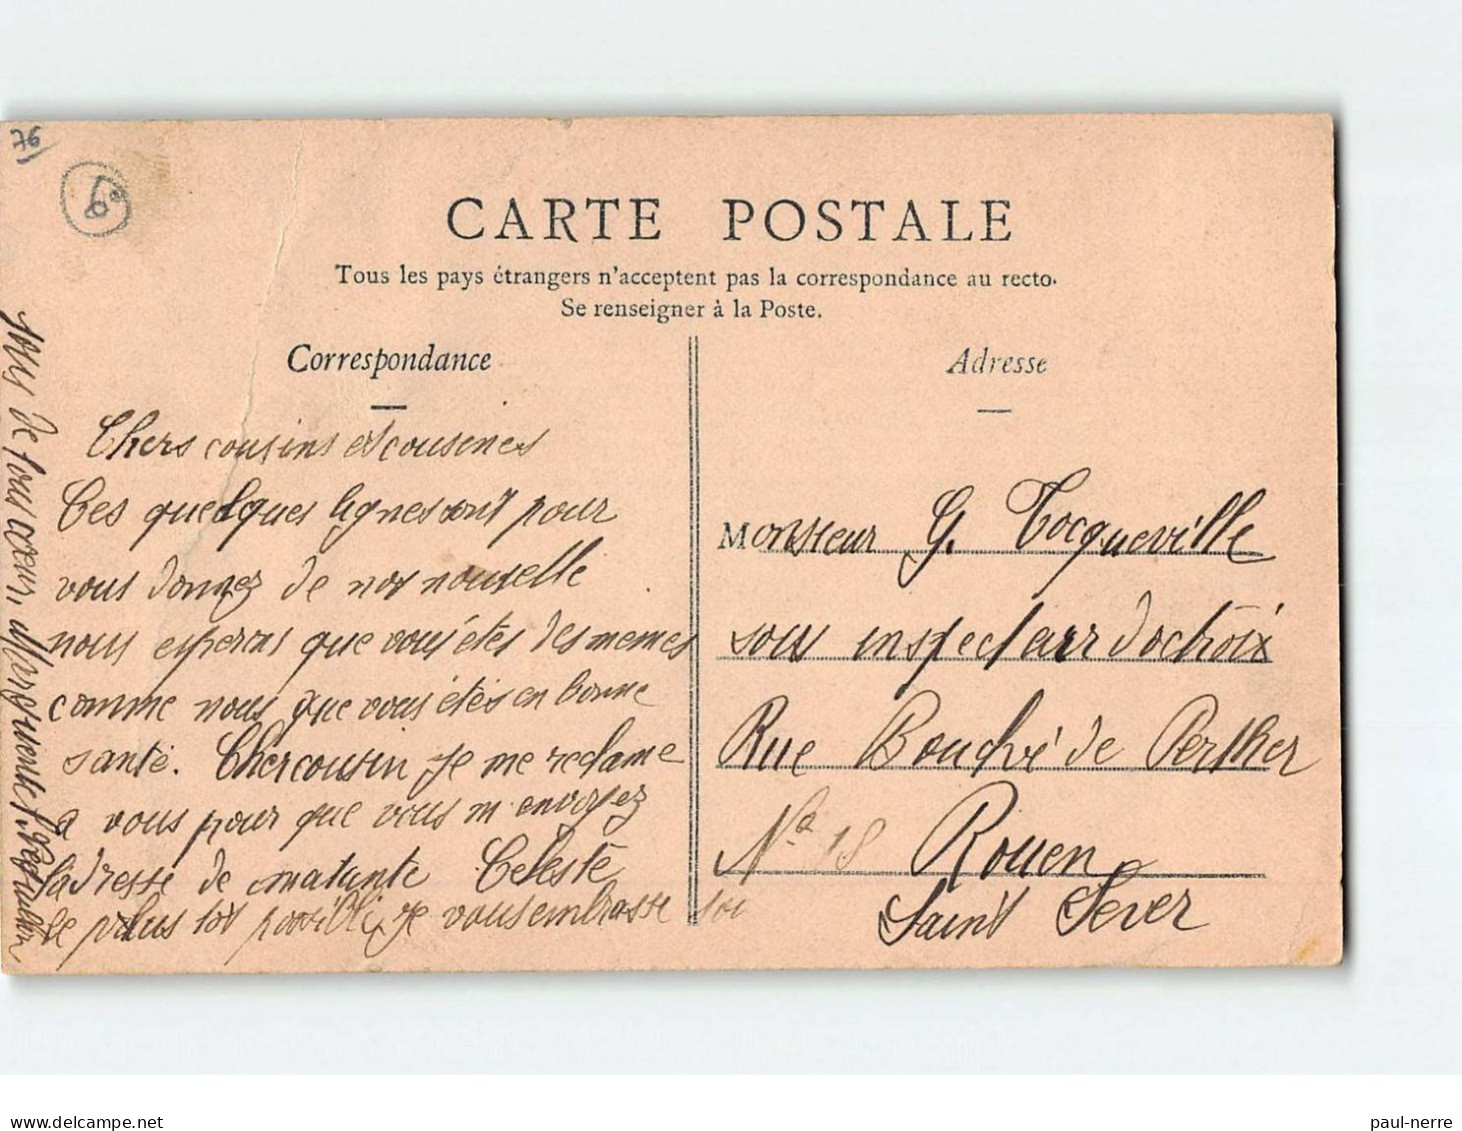 76
6e
CARTE POSTALE
Tous les pays étrangers n'acceptent pas la correspondance au recto.
Se renseigner à la Poste.
Correspondance
Chers cousins et cousines
Ces quelques lignes sont pour
vous donnez de nos nouvelle
nous esperons que vous étes des memes
comme nous que vous étes en bonne
santé. Cher cousin je me reclame
a vous pour que vous m envoyez
l'adresse de matante Celeste
le plus tot possible, je vous embrasse
tous de tous coeur, Marguerite
Adresse
Monsieur G. Tocqueville
sous inspecteurr d'octroix
Rue Bouché de Perther
No 18 Rouen
Saint Sever
paul-nerre